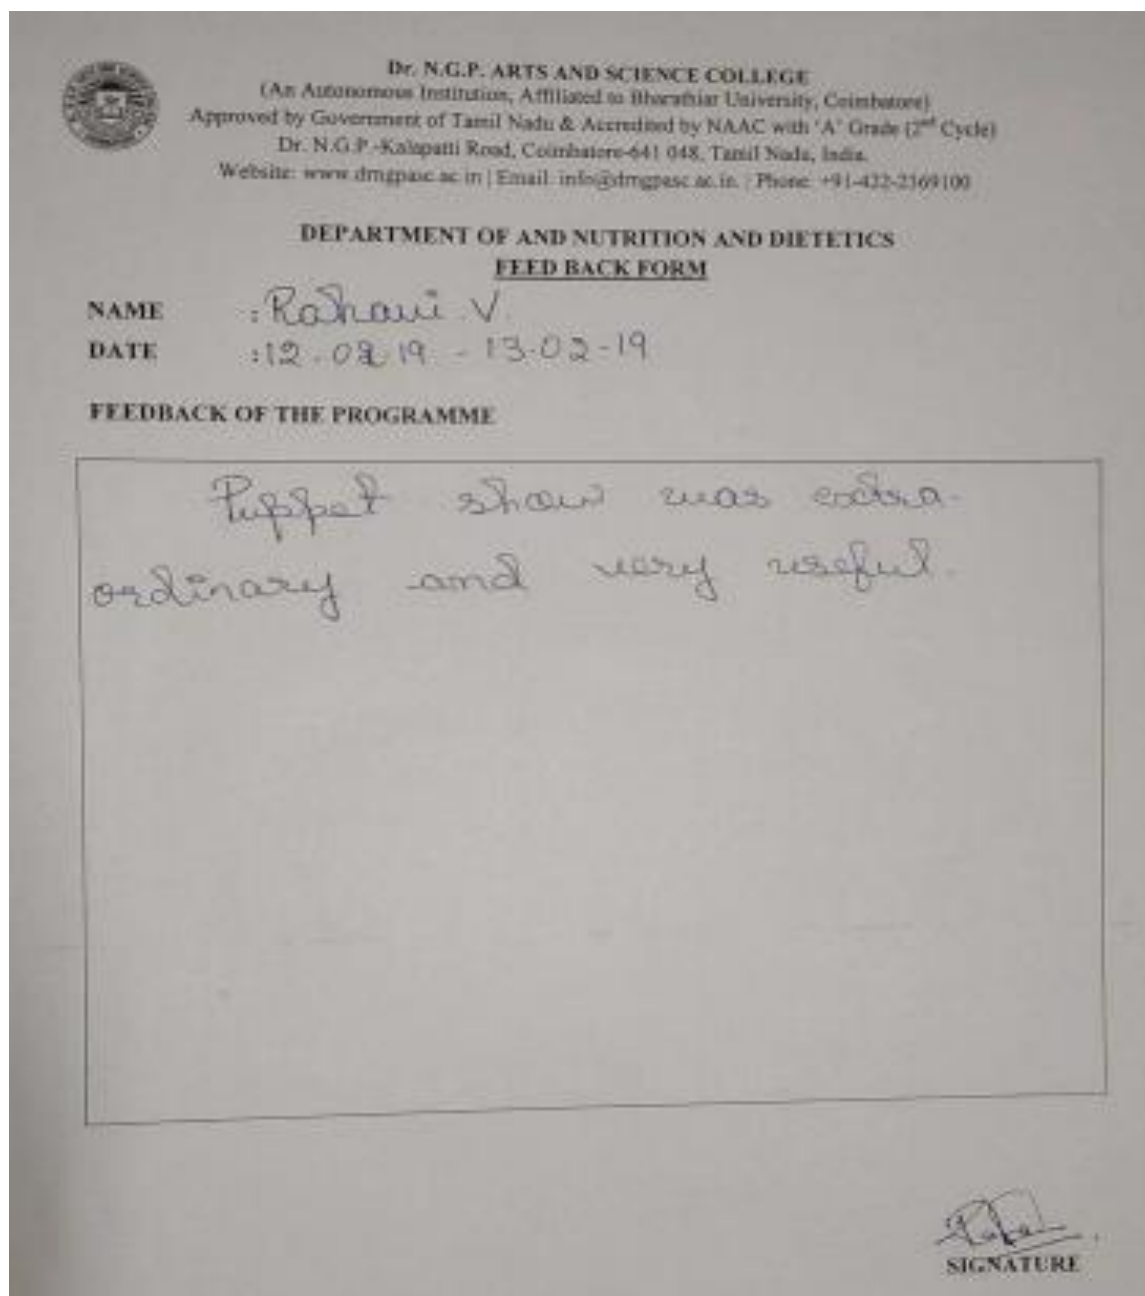 Dr. N.G.P. ARTS AND SCIENCE COLLEGE
(An Autonomous Institution, Affiliated to Bharathiar University, Coimbatore)
Approved by Government of Tamil Nadu & Accredited by NAAC with 'A' Grade (2nd Cycle)
Dr. N.G.P.-Kalapatti Road, Coimbatore-641 048, Tamil Nadu, India.
Website: www.drngpasc.ac.in | Email: info@drngpasc.ac.in | Phone: +91-422-2369100
DEPARTMENT OF AND NUTRITION AND DIETETICS
FEED BACK FORM
NAME : V
DATE :12-02-19 - 13-02-19
FEEDBACK OF THE PROGRAMME
Puppet show was extra-
ordinary and very useful.
SIGNATURE